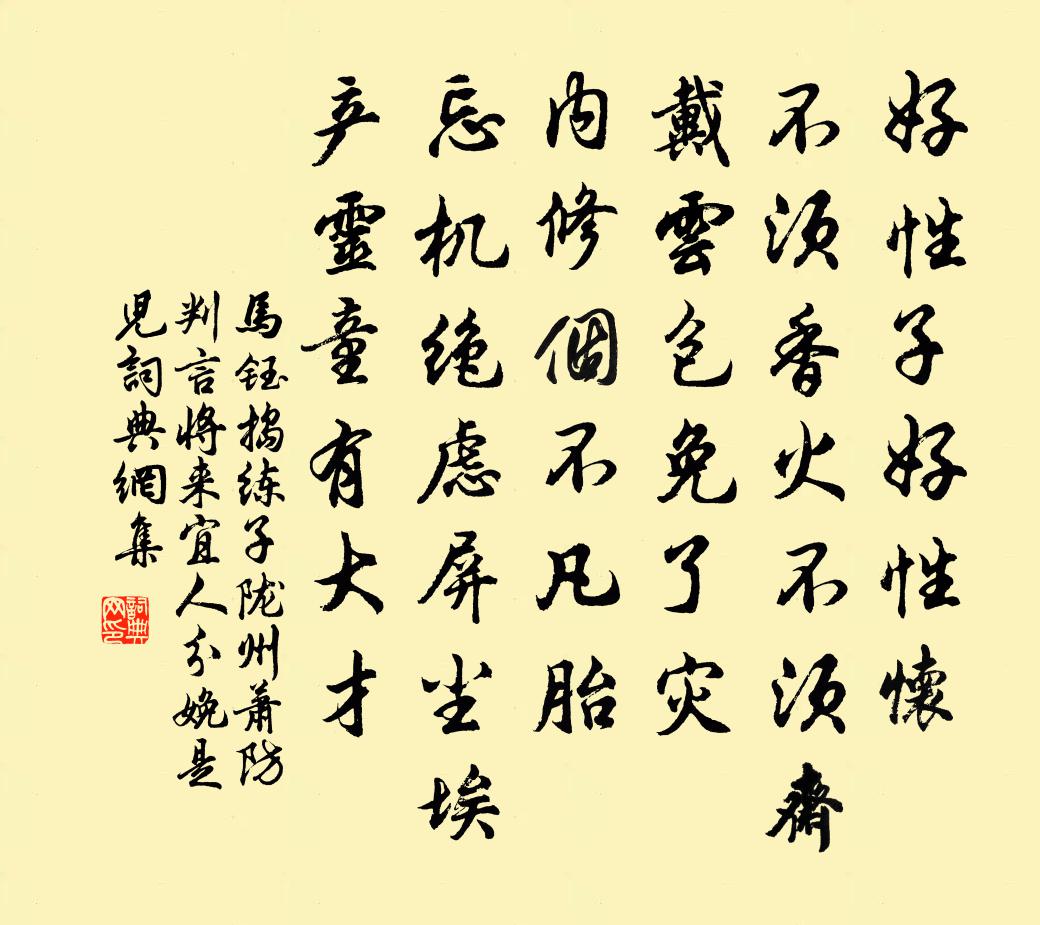 好性子好性懷
不須香火不須齋
戴雲包免了灾
内修個不凡胎
忘机绝虑屏尘埃
产靈童有大才
馬钰捣练子陇州萧防
判言将来宜人分娩是
児詞典網集
詞典网印